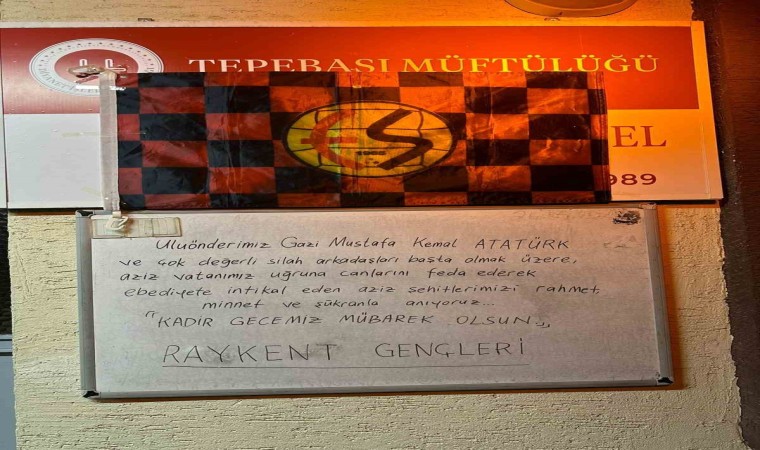 TEPEBAŞI MÜFTÜLÜĞÜ
EL
989
ES
Uluönderimiz Gazi Mustafa Kemal ATATÜRK
ve çok değerli silah arkadaşları başta olmak üzere,
aziz vatanımız uğruna canlarını feda ederek
ebediyete intikal eden aziz şehitlerimizi rahmet,
minnet ve şükranla anıyoruz...
"KADİR GECEMİZ MÜBAREK OLSUN"
RAYKENT GENÇLERİ